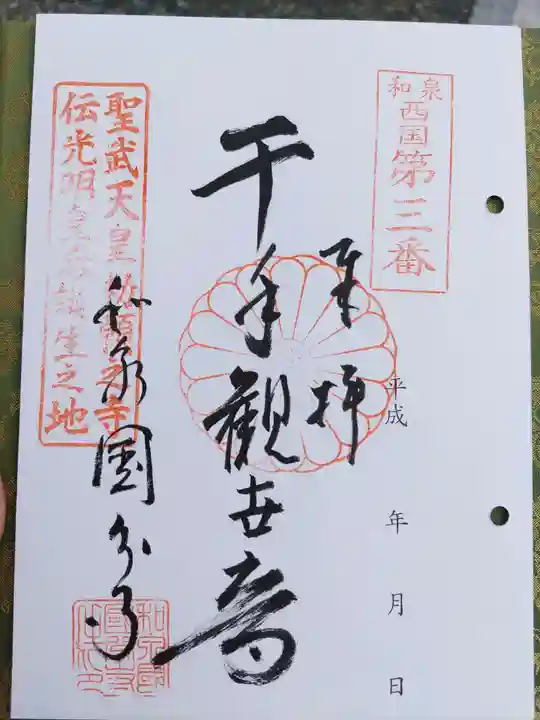 和泉
西国第三番
奉拝
平成 年 月 日
千手観世音
和泉国分寺
聖武天皇勅願寺
伝光明皇后誕生之地